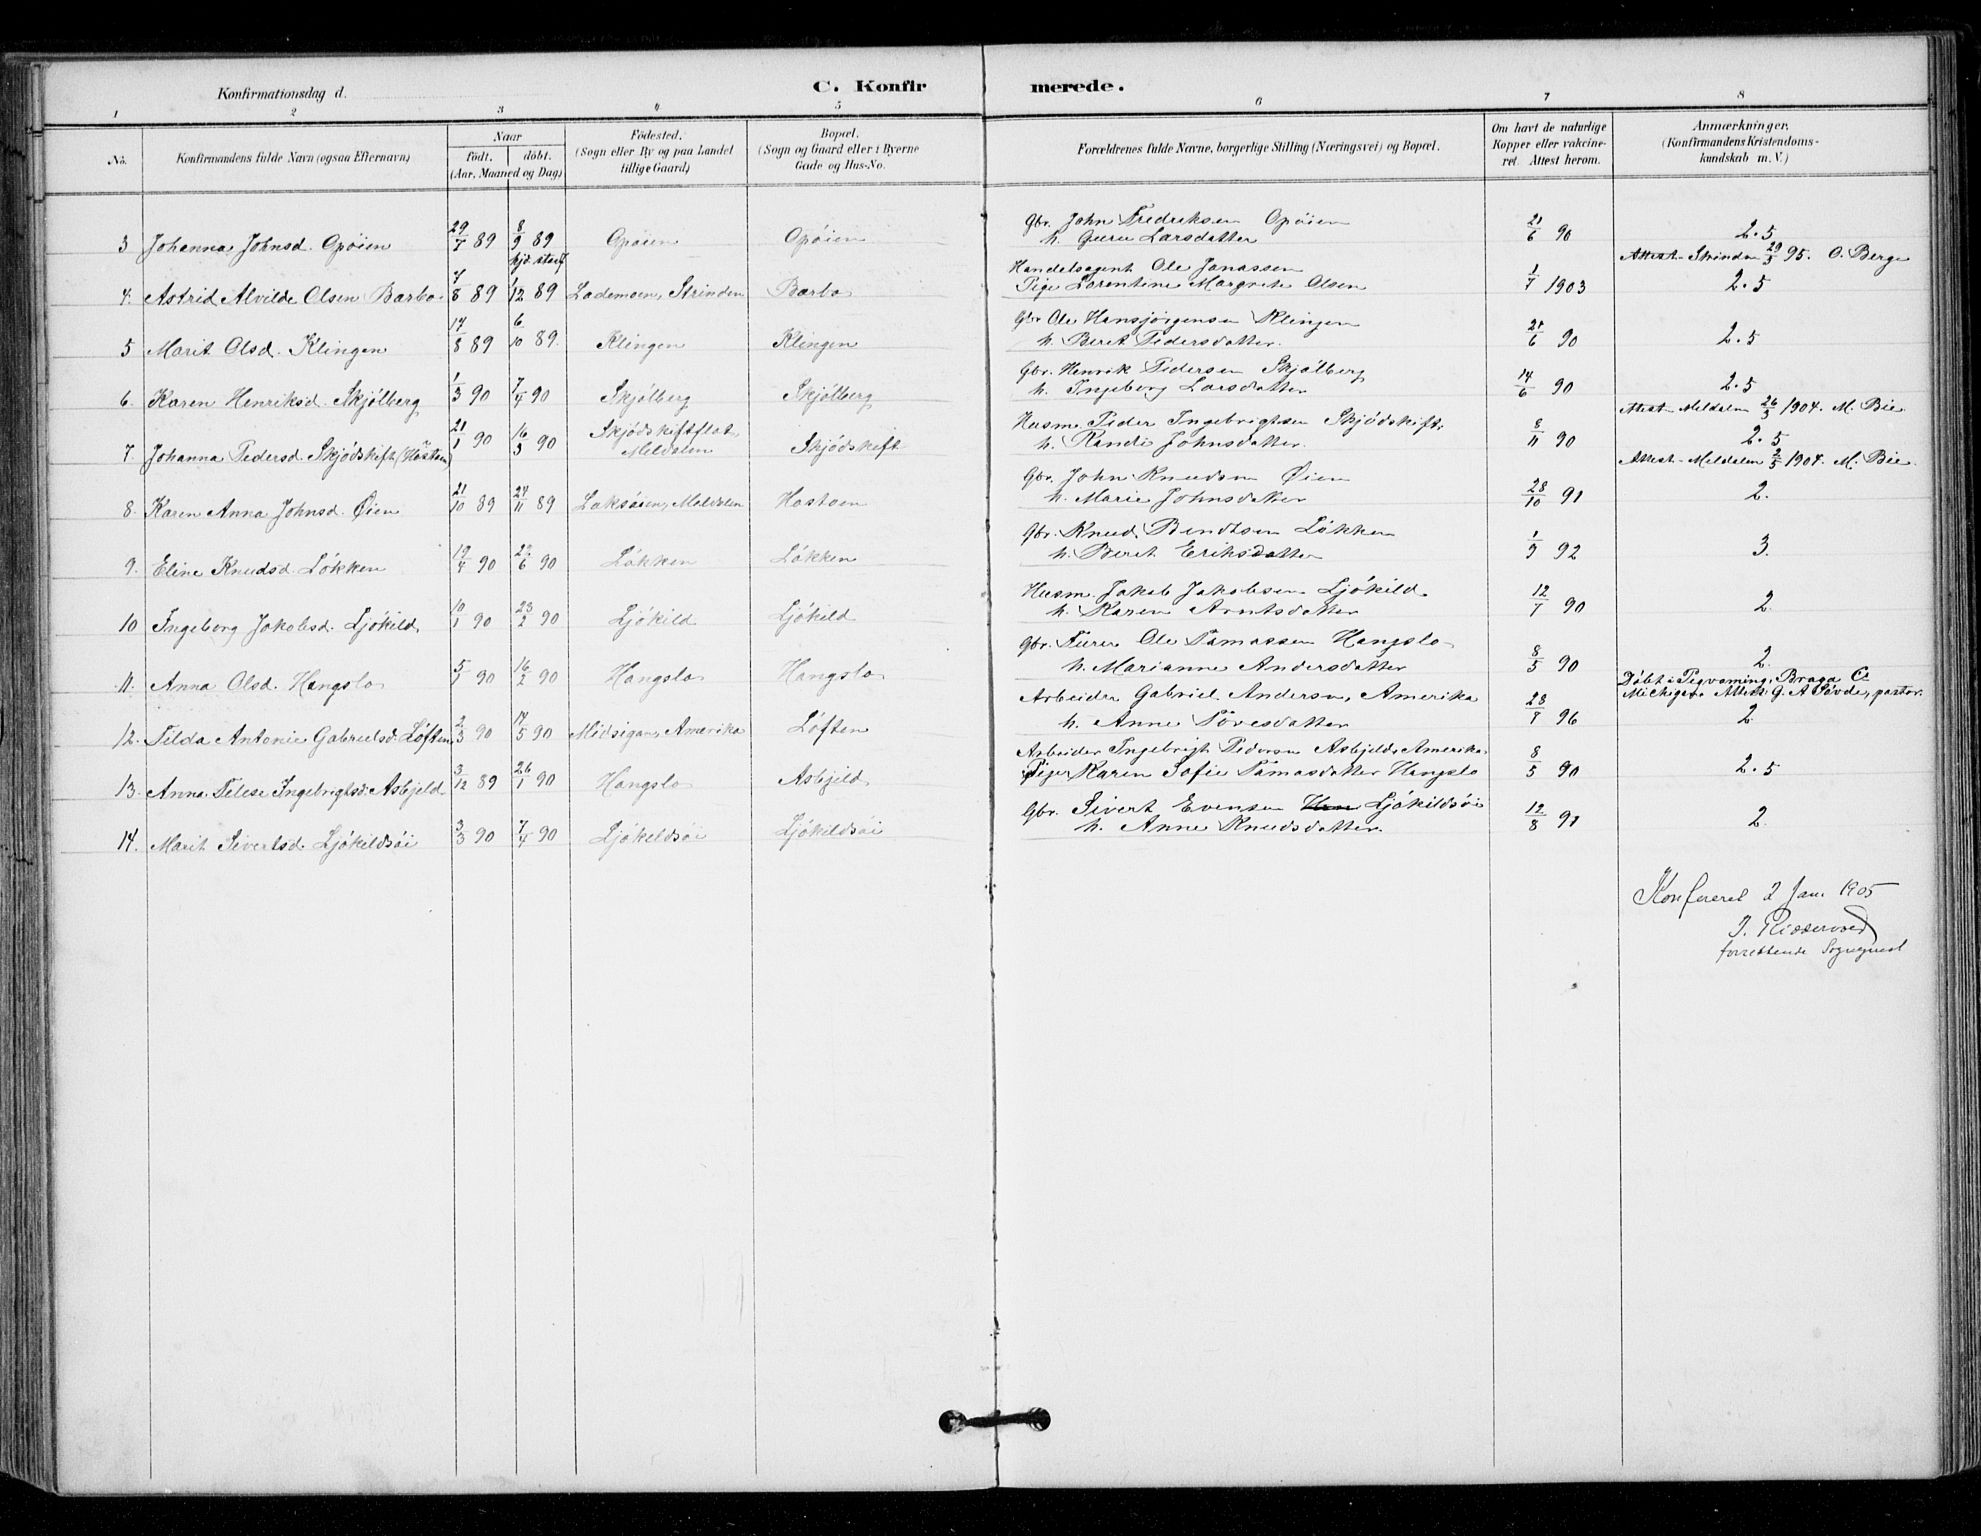 Konfirmationsdag d.
C. Konfirmerede.
1 2 3 4 5 6 7 8
No. Konfirmandens fulde Navn (ogsaa Efternavn)
Naar født. døbt. (Aar, Maaned og Dag)
Fødested. (Sogn eller By og paa Landet tillige Gaard)
Bopæl. (Sogn og Gaard eller i Byerne Gade og Hus-No.
Forældrenes fulde Navne, borgerlige Stilling (Næringsvei) og Bopæl.
Om havt de naturlige Kopper eller vakcineret. Attest herom.
Anmærkninger. (Konfirmandens Kristendomskundskab m. V.)
3 Johanna Johnsd. Opøien 29/7 89 8/9 89 Opøien Opøien Gbr. John Fredriksen Opøien
h. Guru Larsdatter 21/6 90 2.5
hjd. staaf Attest Strinden 29/5 95. O. Berge
4. Astrid Alvilde Olsen Barbo. 7/8 89 1/12 89 Lademoen, Strinden Barbo Handelsagent Ole Jonassen
Pige Lorentine Margrete Olsen 1/7 1903 2.5
5 Marit Olsd. Klingen 17/8 89 6/10 89. Klingen Klingen Gbr Ole Hansjørgensen Klingen
h. Beret Pedersdatter. 21/6 90 2.5
6. Karen Henriksd. Skjølberg 1/3 90 7/4 90 Skjølberg Skjølberg Gbr. Henrik Pedersen Skjølberg
h. Ingeborg Larsdatter 14/6 90 2.5
Attest Meldalen 26/5 1904. M. Bie
7. Johanna Pedersd. Skjødskift (Høstoen) 21/1 90 16/3 90 Skjødskiftflot, Meldalen Skjødskift Husm. Peder Ingebrigtsen Skjødskift.
h. Randi Johnsdatter. 8/11 90 2.5
Attest Meldalen 2/5 1904. M. Bie.
8. Karen Anna Johnsd. Øien 21/10 89 24/11 89 Laksøien, Meldalen Hostoen Gbr. John Knudsen Øien
h. Marie Johnsdatter 28/10 91 2.
9. Eline Knudsd. Løkken 19/4 90 22/6 90 Løkken Løkken Gbr. Knud Bendtsen Løkken
h. Beret Eriksdatter 1/9 92 3.
10 Ingeborg Jakobsd. Ljøkild. 10/1 90 23/2 90 Ljøkild Ljøkild Husm. Jakob Jakobsen Ljøkild.
h. Karen Arntsdatter 12/7 90 2
11. Anna Olsd. Hongslo 5/1 90 16/2 90 Hongslo Hongslo Gbr. Furer Ole Tomassen Hongslo
h. Marianne Andersdatter 8/5 90 2.
Døbt i Pigvoming, Braga Co
Michigan Attest G. A. Søvde, pastor.
12. Tilda Antonie Gabrielsd. Løften 2/3 90 14/5 90 Midsigan, Amerika Løften Arbeider Gabriel Anderson, Amerika
h. Anne Toresdatter 28/7 96 2.
13. Anna Telese Ingebrigtsd. Asbjeld 3/12 89 26/1 90 Hongslo Asbjeld Arbeider Ingebrigt Pedersen Asbjeld, Amerika.
Pige Karen Sofie Tomasdatter Hongslo 8/5 90 2.5
14. Marit Sivertsd. Ljøkildsøi 3/3 90 7/4 90 Ljøkildsøi Ljøkildsøi Gbr. Sivert Evensen Ljøkildsøi
h. Anne Knudsdatter. 12/8 91 2.
Konfereret 2 Jan. 1905
J. Riddervold
forrettende Sogneprest